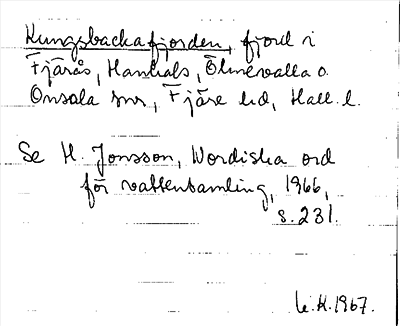 Kungsbackafjorden, fjord i
Fjärås, Hanhals, Ölmevalla o.
Onsala snr, Fjäre hd, Hall. l.
Se H. Jonsson, Nordiska ord
för vattensamling, 1966,
s. 231.
U.H. 1967.